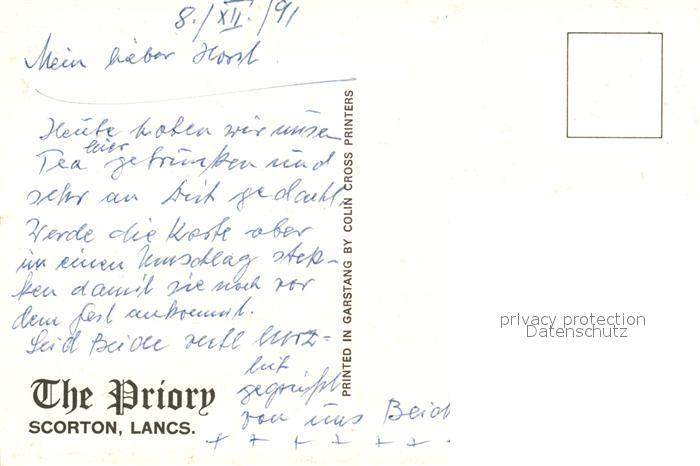 8./XII./91
Mein lieber Horst
Heute haben wir unsen
Tea hier getrunken und
sehr an Dich gedacht.
Werde die Karte aber
in einen Umschlag stek-
ken damit sie noch vor
dem Fest ankommt.
Seid Beide recht herz-
lich
gegrüßt
von uns Beid
+ + + + + +
The Priory
SCORTON, LANCS.
PRINTED IN GARSTANG BY COLIN CROSS PRINTERS
privacy protection
Datenschutz